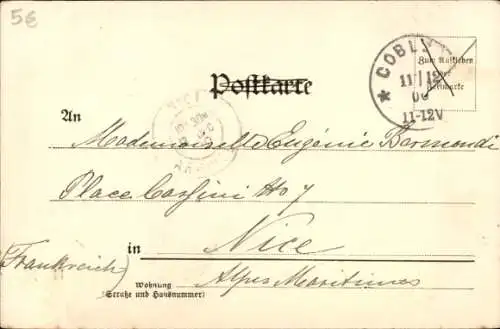 5€
COBL
Zum Aufkleben
der
Freimarke
11 12
00
11-12V
Postkarte
An
Mademoiselle Eugénie Bermondi
Place Cassini No 7
in Nice
(Frankreich)
Wohnung Alpes Maritimes
(Straße und Hausnummer)